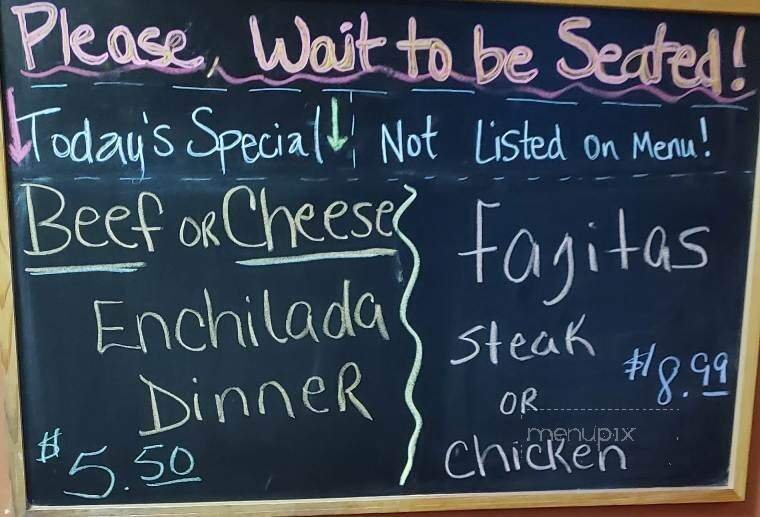 Please, Wait to be Seated!
Today's Special
Not Listed on Menu!
Beef OR Cheese
Enchilada
Dinner
$5.50
Fajitas
Steak
OR
Chicken
$8.99
menupix